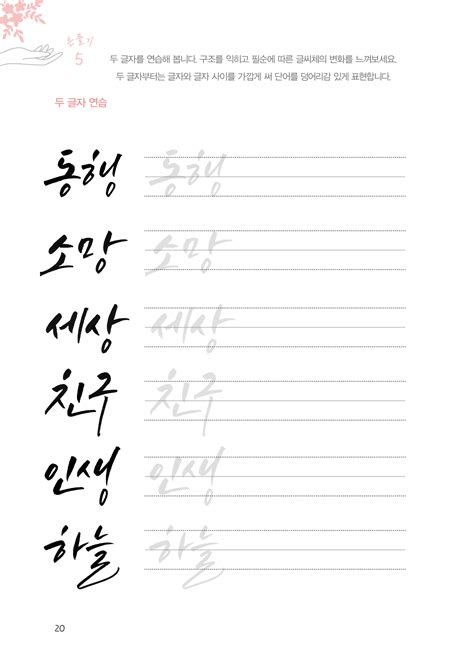 손풀기
5
두 글자를 연습해 봅니다. 구조를 익히고 필순에 따른 글씨체의 변화를 느껴보세요.
두 글자부터는 글자와 글자 사이를 가깝게 써 단어를 덩어리감 있게 표현합니다.
두 글자 연습
동행 동행
소망 소망
세상 세상
친구 친구
인생 인생
하늘 하늘
20